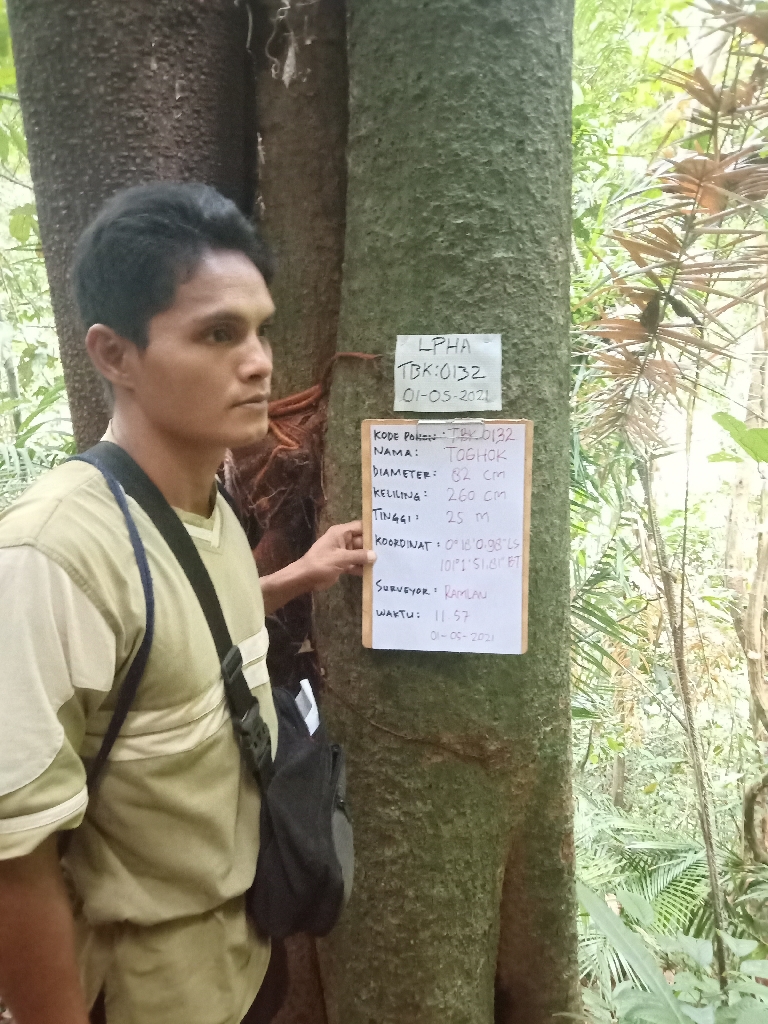 LPHA
TBK:0132
01-05-2021
KODE POHON : TBK0132
NAMA : TOGHOK
DIAMETER : 82 cm
KELILING : 260 cm
TINGGI : 25 m
KOORDINAT : 0°18'0,98"LS
101°1'51,81"ET
SURVEYOR : RAMLAN
WAKTU : 11.57
01-05-2021